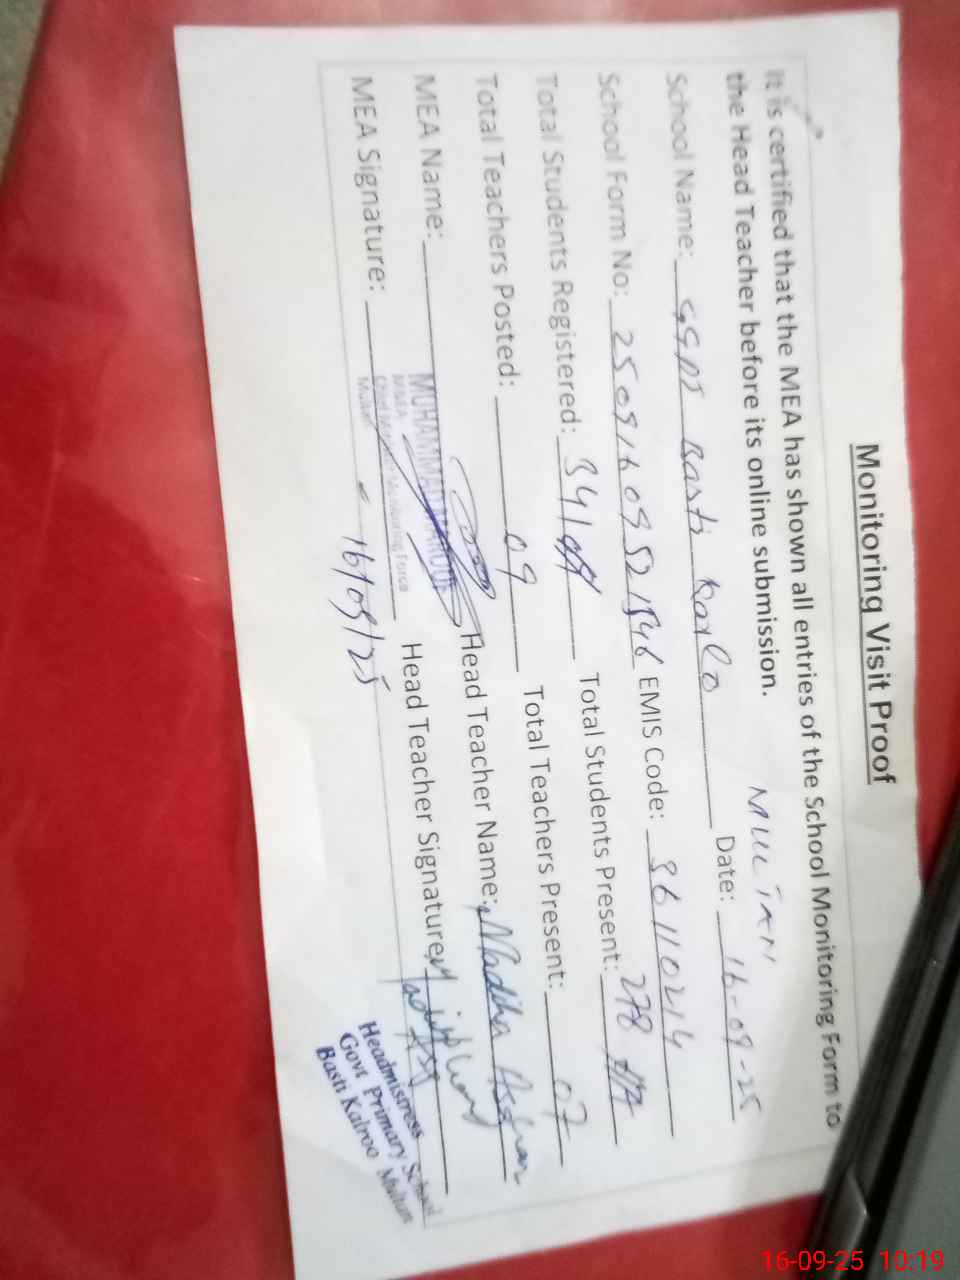 Monitoring Visit Proof
It is certified that the MEA has shown all entries of the School Monitoring Form to
the Head Teacher before its online submission.
MULTAN
School Name: GGPS Basti Date: 16-09-25
School Form No: EMIS Code: 36110214
Total Students Registered: 341 Total Students Present: 278
Total Teachers Posted: 09 Total Teachers Present: 07
MEA Name: MUHAMMAD Head Teacher Name: Nadiha
MEA
Monitoring Force
Multan
MEA Signature: Head Teacher Signature
16/09/25
Headmistress
Govt Primary School
Basti Kalroo Multan
16-09-25 10:19